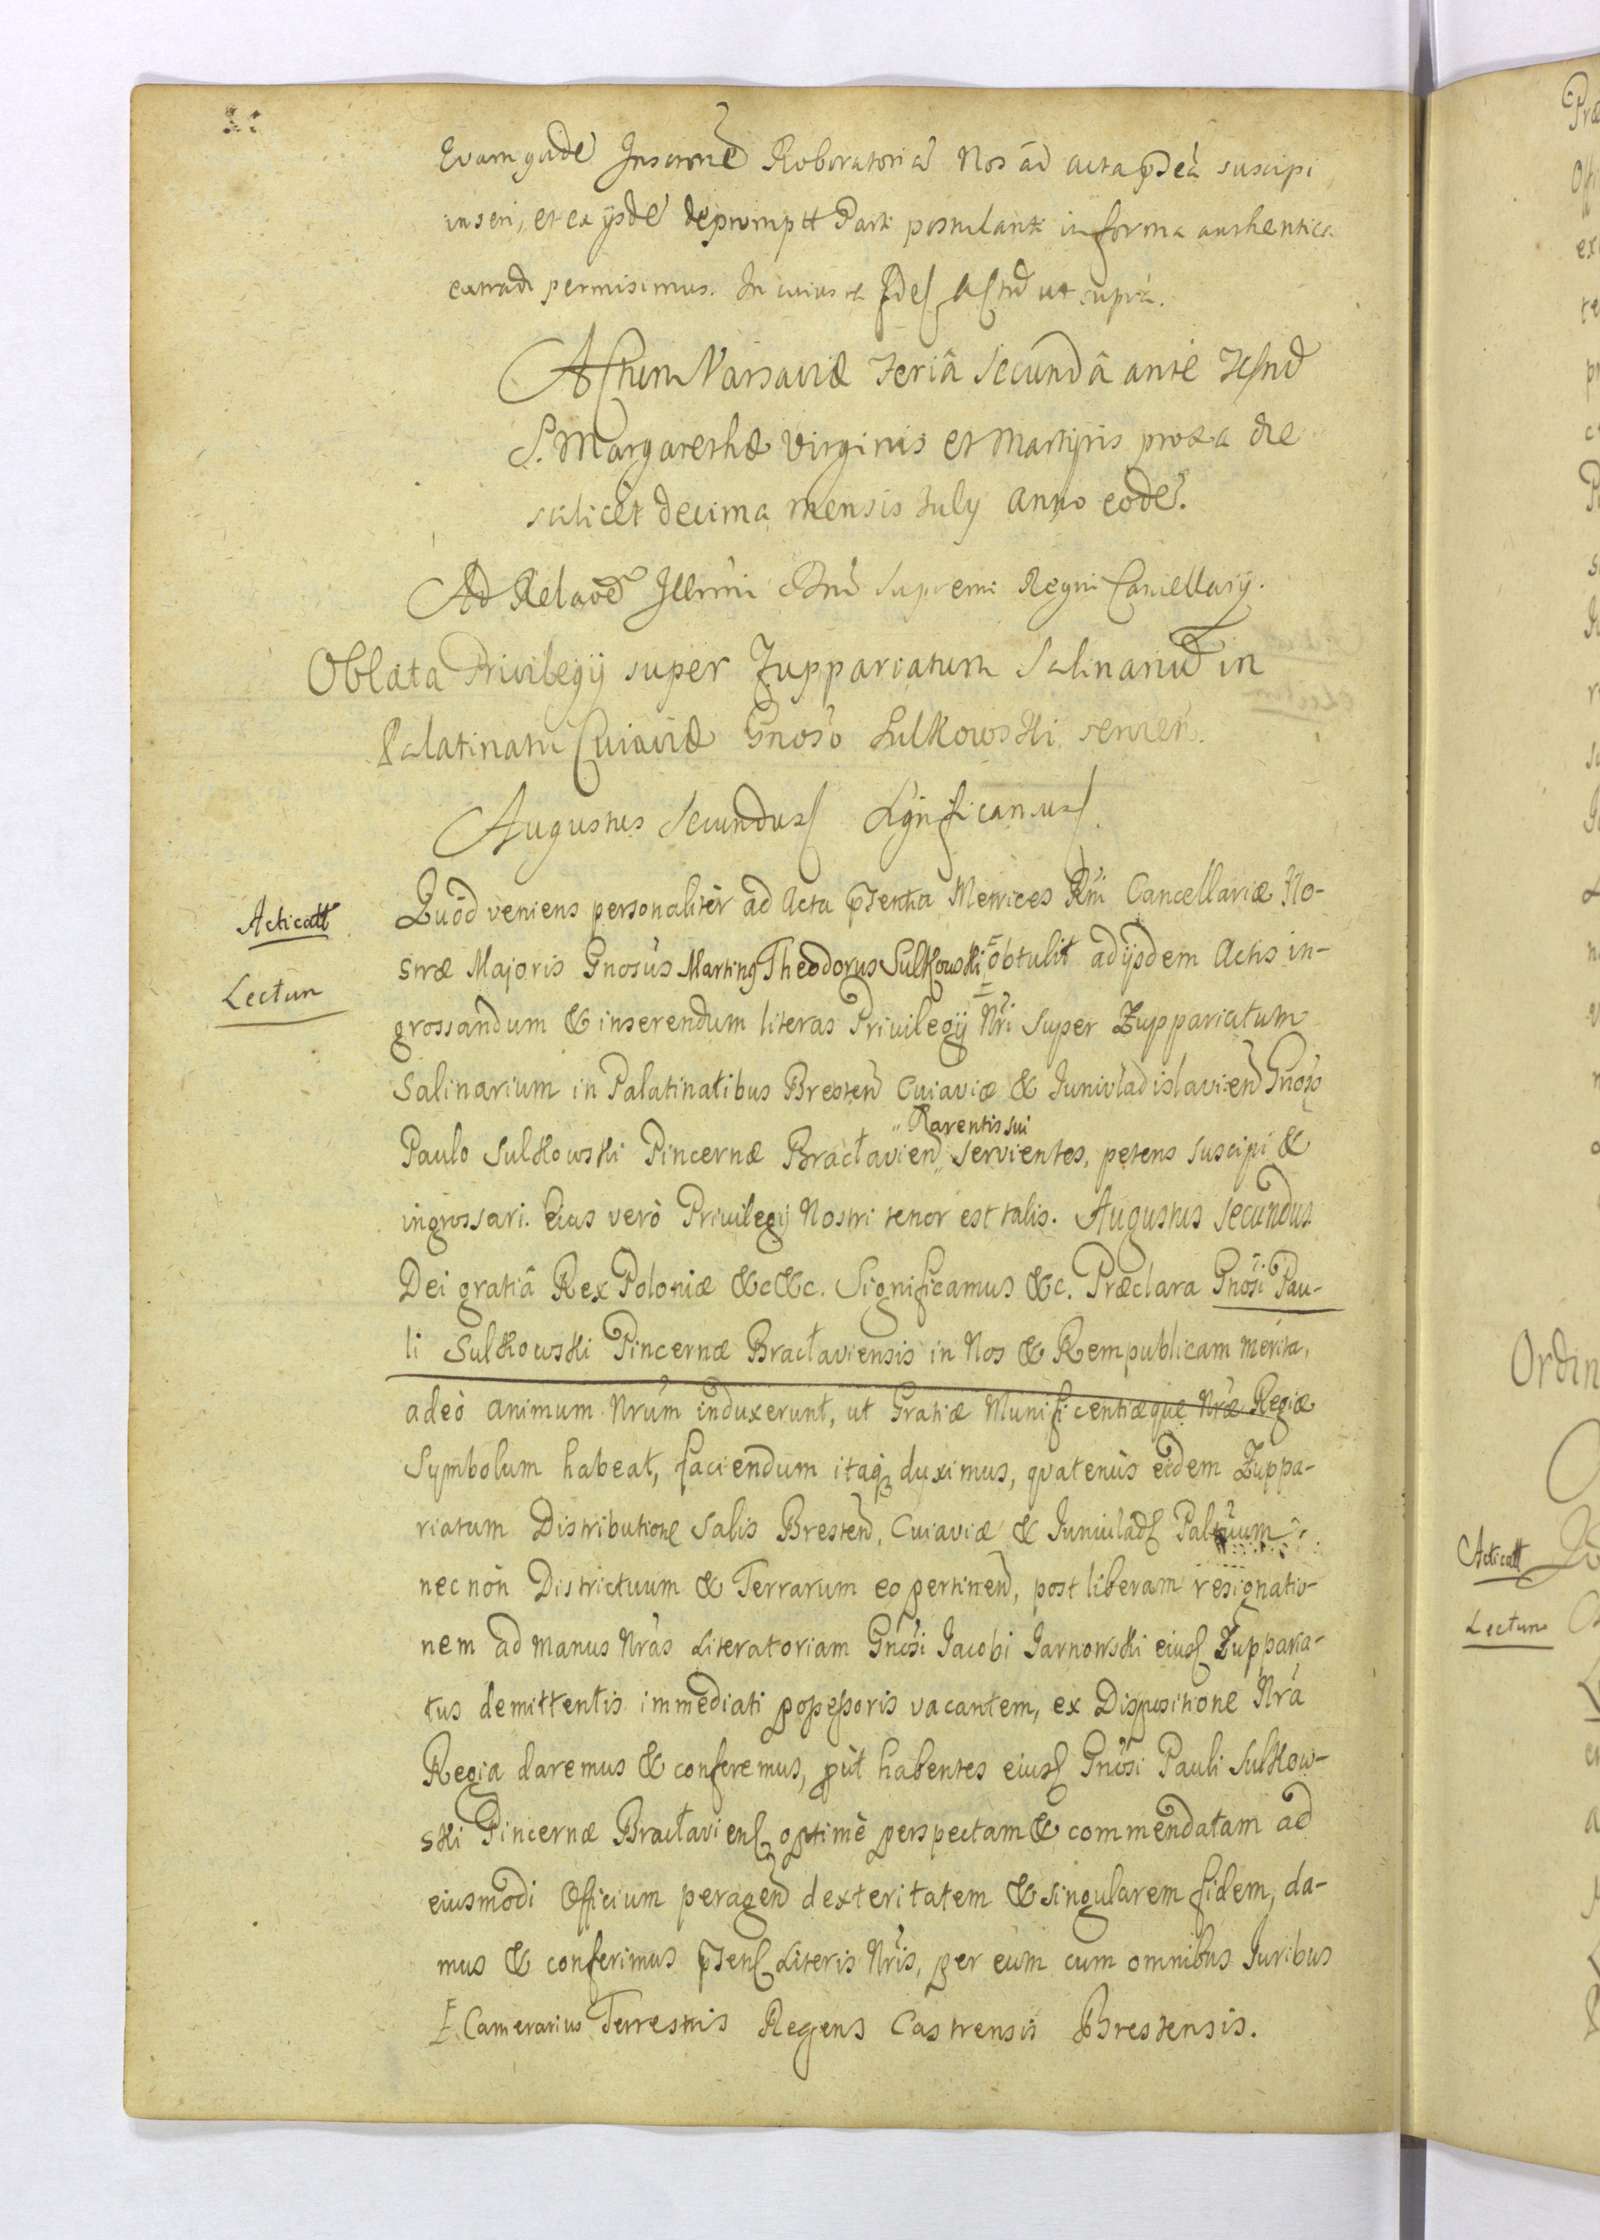 Quam quidẽ Inscrone Roboratoriã Nos ad acta pdcta suscipi
inseri, et ex ijsde depromptt Parti postulanti in forma authentica
extradi permisimus. In cuius rei fide Actu ut supra.
Actum Varsaviæ Feriâ Secundâ ante Festũ
S. Margarethæ Virginis et Martijris proxa die
scilicèt decima mensis July Anno eodẽ.
Ad Relaõẽ Illrmi Dni Supremi Regni Cancellarij.
Oblata Privilegij super Zuppariatum Salinariũ in
Palatinatu Cuiaviæ Gnoso Sulkowski servien.
Augustus Secundus Significamus
Acticatt
Quod veniens personalitèr ad Acta pntia Metrices Rni Cancellariæ No-
stræ Majoris Gnosus Marting Theodorus Sulkowski obtulit adijsdem Actis in-
Lectum
grossandum & inserendum literas Privilegij Nri super Zuppariatum
Salinarium in Palatinatibus Bresten Cuiaviæ & Junivladislavien Gnoso
Parentis sui
Paulo Sulkowski Pincernæ Bractavien servientes, petens suscipi &
ingrossari. Cuius verò Privilegij Nostri tenor est talis. Augustus Secundus
Dei gratiâ Rex Poloniæ &c &c. Significamus &c. Præclara Gnosi Pau-
li Sulkowski Pincernæ Bractaviensis in Nos & Rempublicam merita,
adeò animum Nrum induxerunt, ut Gratiæ Munificentiæque Nræ Regiæ
Symbolum habeat, faciendum itaq duximus, quatenùs eidem Zuppa-
riatum Distributione Salis Bresten, Cuiaviæ & Junivlad Paltuum
nec non Districtuum & Terrarum eo pertinen, post liberam resignatio-
nem ad manus Nras Literatoriam Gnosi Jacobi Jarnowski eius Zupparia-
tus demittentis immediati possessoris vacantem, ex Dispositione Nra
Regia daremus & conferemus, put habentes eius Gnosi Pauli Sulkow-
ski Pincernæ Bractavien optimè perspectam & commendatam ad
eiusmodi Officium peragend dexteritatem & singularem fidem, da-
mus & conferimus pnten Literis Nris, per eum cum omnibus Juribus
Camerarius Terrestris Regens Castrensis Brestensis.
Ordin
Acticatt
Lectum